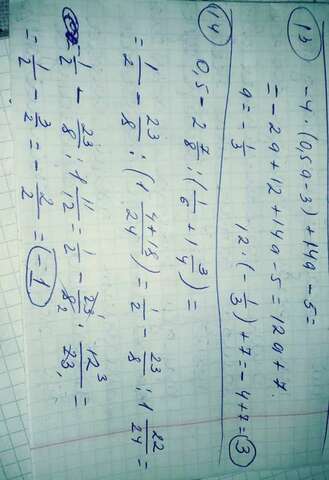 13
-4·(0,5a-3)+14a-5=
=-2a+12+14a-5=12a+7
a=-1/3 12·(-1/3)+7=-4+7=3
14
0,5-2 7/8:(1/6+1 3/4)=
=1/2-23/8:(1 4+18/24)=1/2-23/8:1 22/24=
1/2-23/8:1 11/12=1/2-23/8·12/23=
=1/2-3/2=-2/2=-1